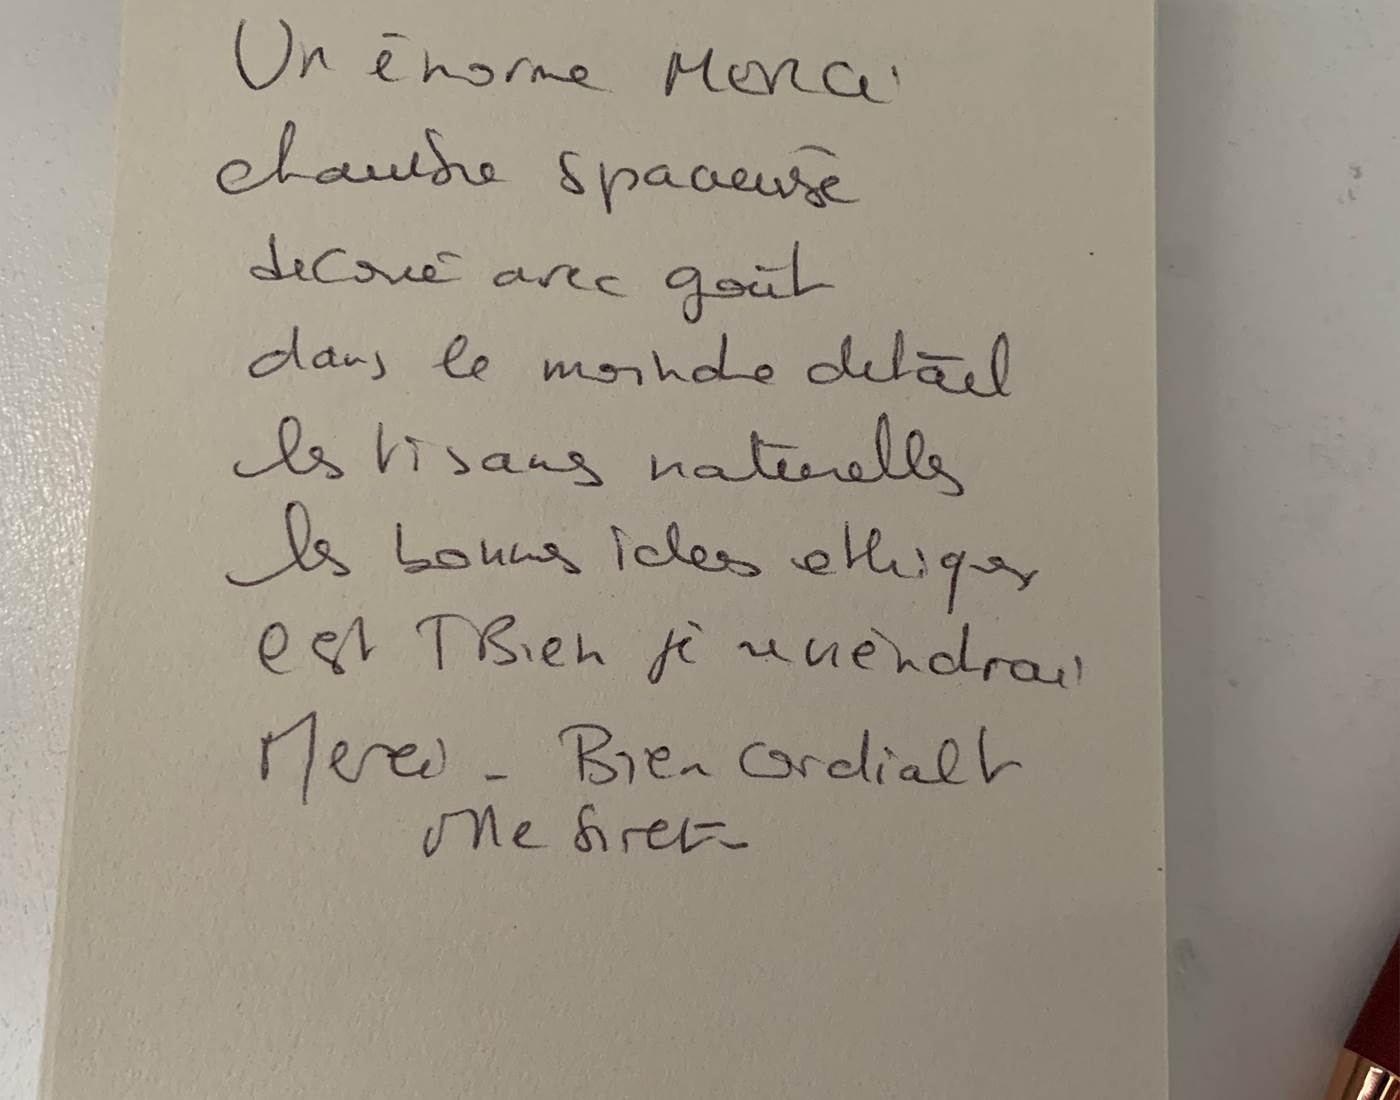 Un énorme Merci
chambre spacieuse
decoré avec goût
dans le moindre detail
les tisanes naturelles
les bonnes idees ethiques
est T Bien je reviendrai
Merci - Bien cordialt
Mme